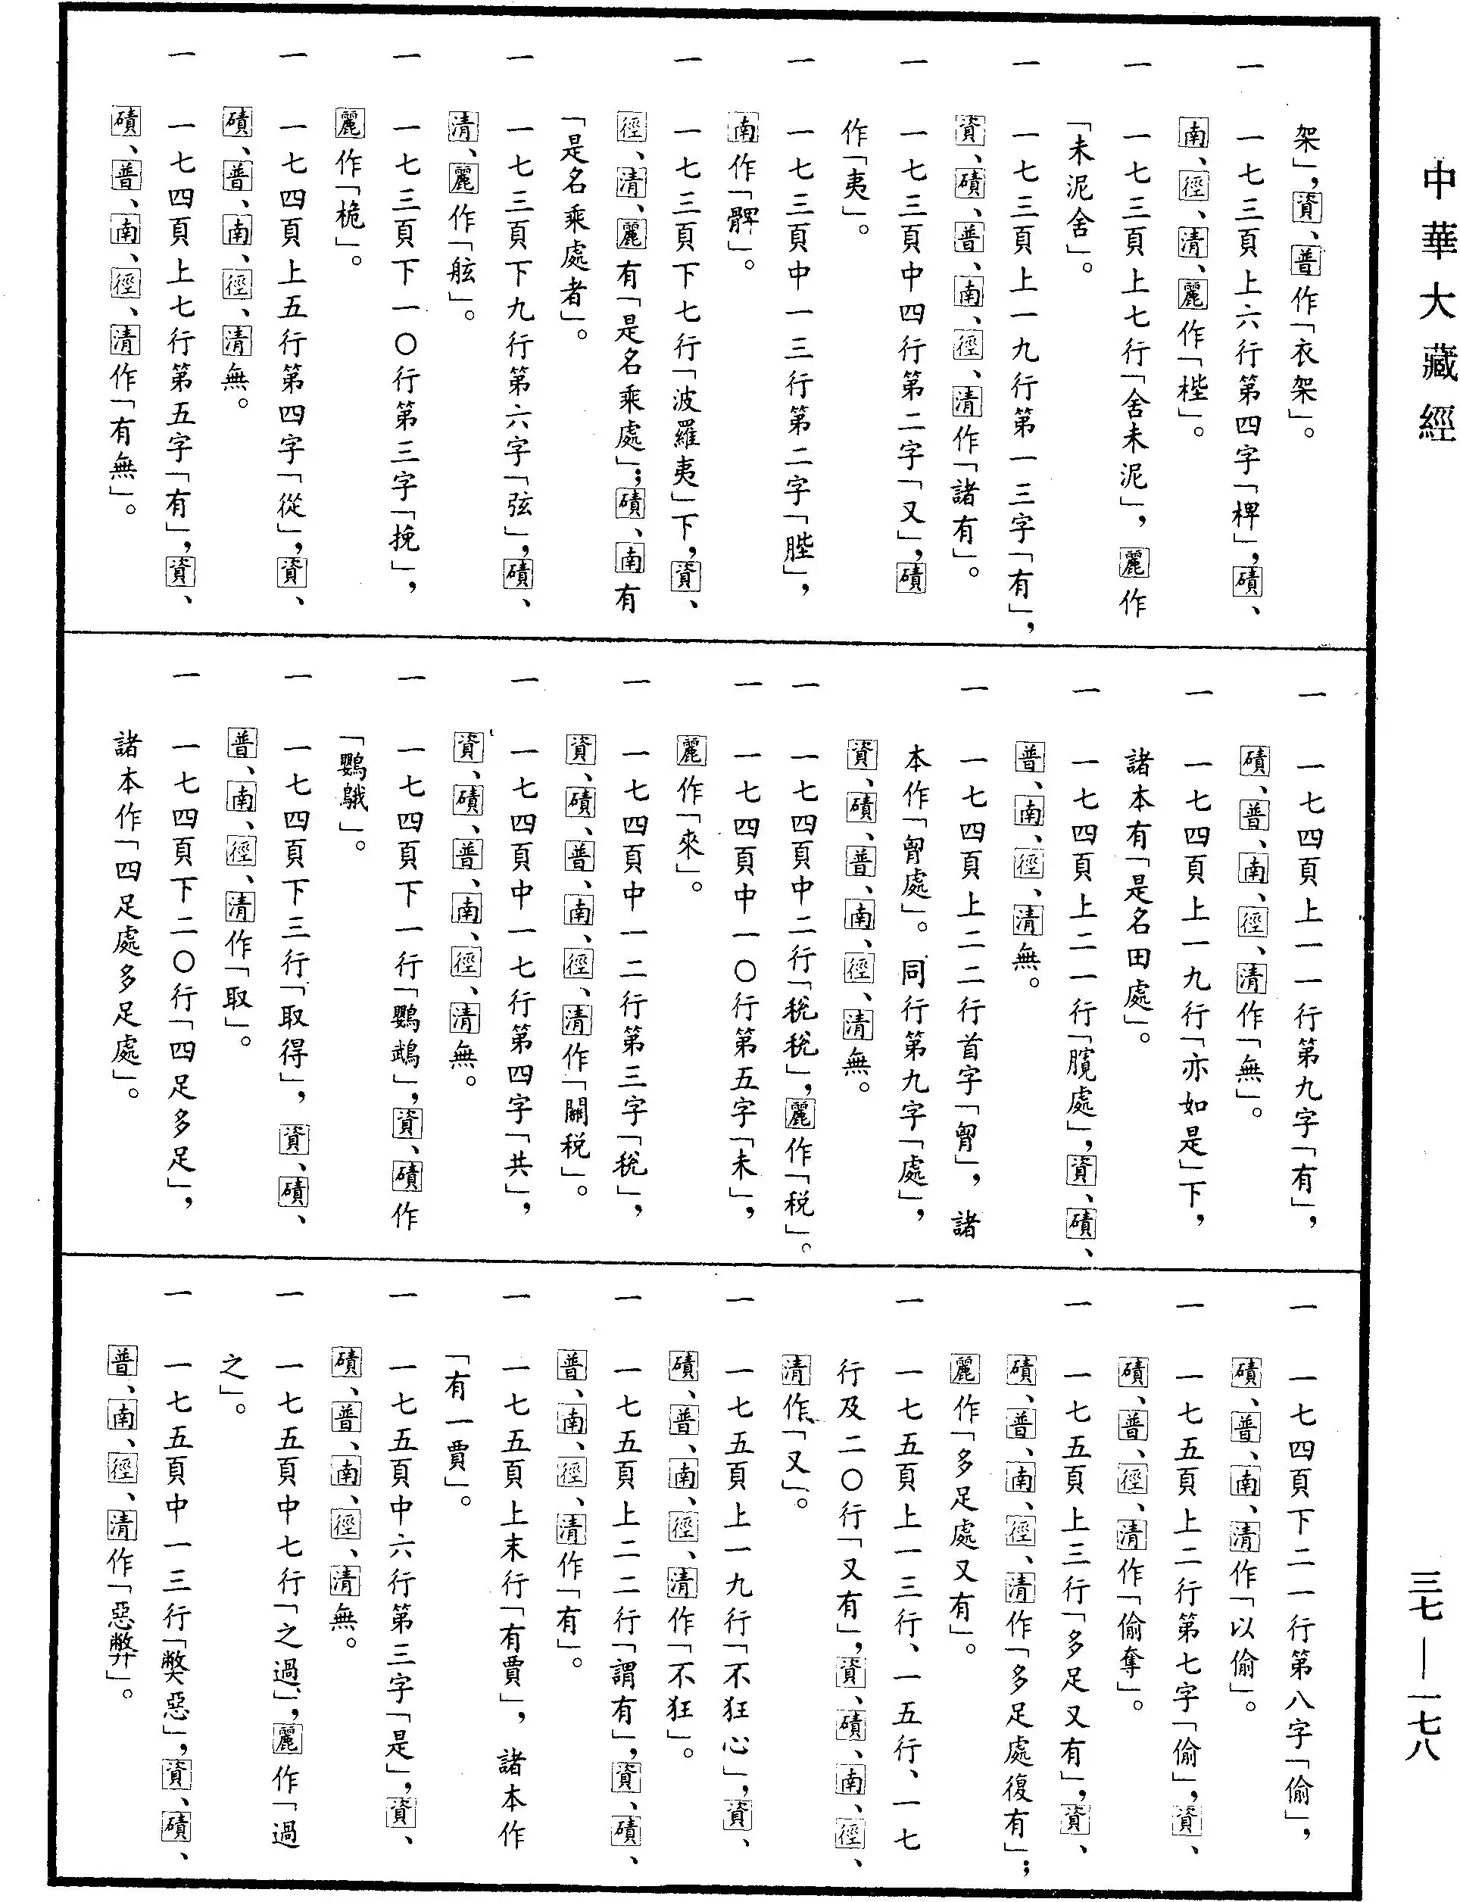 中華大藏經
架」，資、普作「衣架」。
一 一七三頁上六行第四字「椑」，磧、
南、徑、清、麗作「梐」。
一 一七三頁上七行「舍未泥」，麗作
「未泥舍」。
一 一七三頁上一九行第一三字「有」，
資、磧、普、南、徑、清作「諸有」。
一 一七三頁中四行第二字「又」，磧
作「夷」。
一 一七三頁中一三行第二字「䏶」，
南作「髀」。
一 一七三頁下七行「波羅夷」下，資、
徑、清、麗有「是名乘處」；磧、南有
「是名乘處者」。
一 一七三頁下九行第六字「弦」，磧、
清、麗作「舷」。
一 一七三頁下一〇行第三字「挽」，
麗作「桅」。
一 一七四頁上五行第四字「從」，資、
磧、普、南、徑、清無。
一 一七四頁上七行第五字「有」，資、
磧、普、南、徑、清作「有無」。
一 一七四頁上一一行第九字「有」，
磧、普、南、徑、清作「無」。
一 一七四頁上一九行「亦如是」下，
諸本有「是名田處」。
一 一七四頁上二一行「臗處」，資、磧、
普、南、徑、清無。
一 一七四頁上二二行首字「胷」，諸
本作「胷處」。同行第九字「處」，
資、磧、普、南、徑、清無。
一 一七四頁中二行「稅稅」，麗作「稅」。
一 一七四頁中一〇行第五字「未」，
麗作「來」。
一 一七四頁中一二行第三字「稅」，
資、磧、普、南、徑、清作「關稅」。
一 一七四頁中一七行第四字「共」，
資、磧、普、南、徑、清無。
一 一七四頁下一行「鸚鵡」，資、磧作
「鸚䳘」。
一 一七四頁下三行「取得」，資、磧、
普、南、徑、清作「取」。
一 一七四頁下二〇行「四足多足」，
諸本作「四足處多足處」。
一 一七四頁下二一行第八字「偷」，
磧、普、南、清作「以偷」。
一 一七五頁上二行第七字「偷」，資、
磧、普、徑、清作「偷奪」。
一 一七五頁上三行「多足又有」，資、
磧、普、南、徑、清作「多足處復有」；
麗作「多足處又有」。
一 一七五頁上一三行、一五行、一七
行及二〇行「又有」，資、磧、南、徑、
清作「又」。
一 一七五頁上一九行「不狂心」，資、
磧、普、南、徑、清作「不狂」。
一 一七五頁上二二行「謂有」，資、磧、
普、南、徑、清作「有」。
一 一七五頁上末行「有賈」，諸本作
「有一賈」。
一 一七五頁中六行第三字「是」，資、
磧、普、南、徑、清無。
一 一七五頁中七行「之過」，麗作「過
之」。
一 一七五頁中一三行「獘惡」，資、磧、
普、南、徑、清作「惡弊」。
三七—一七八